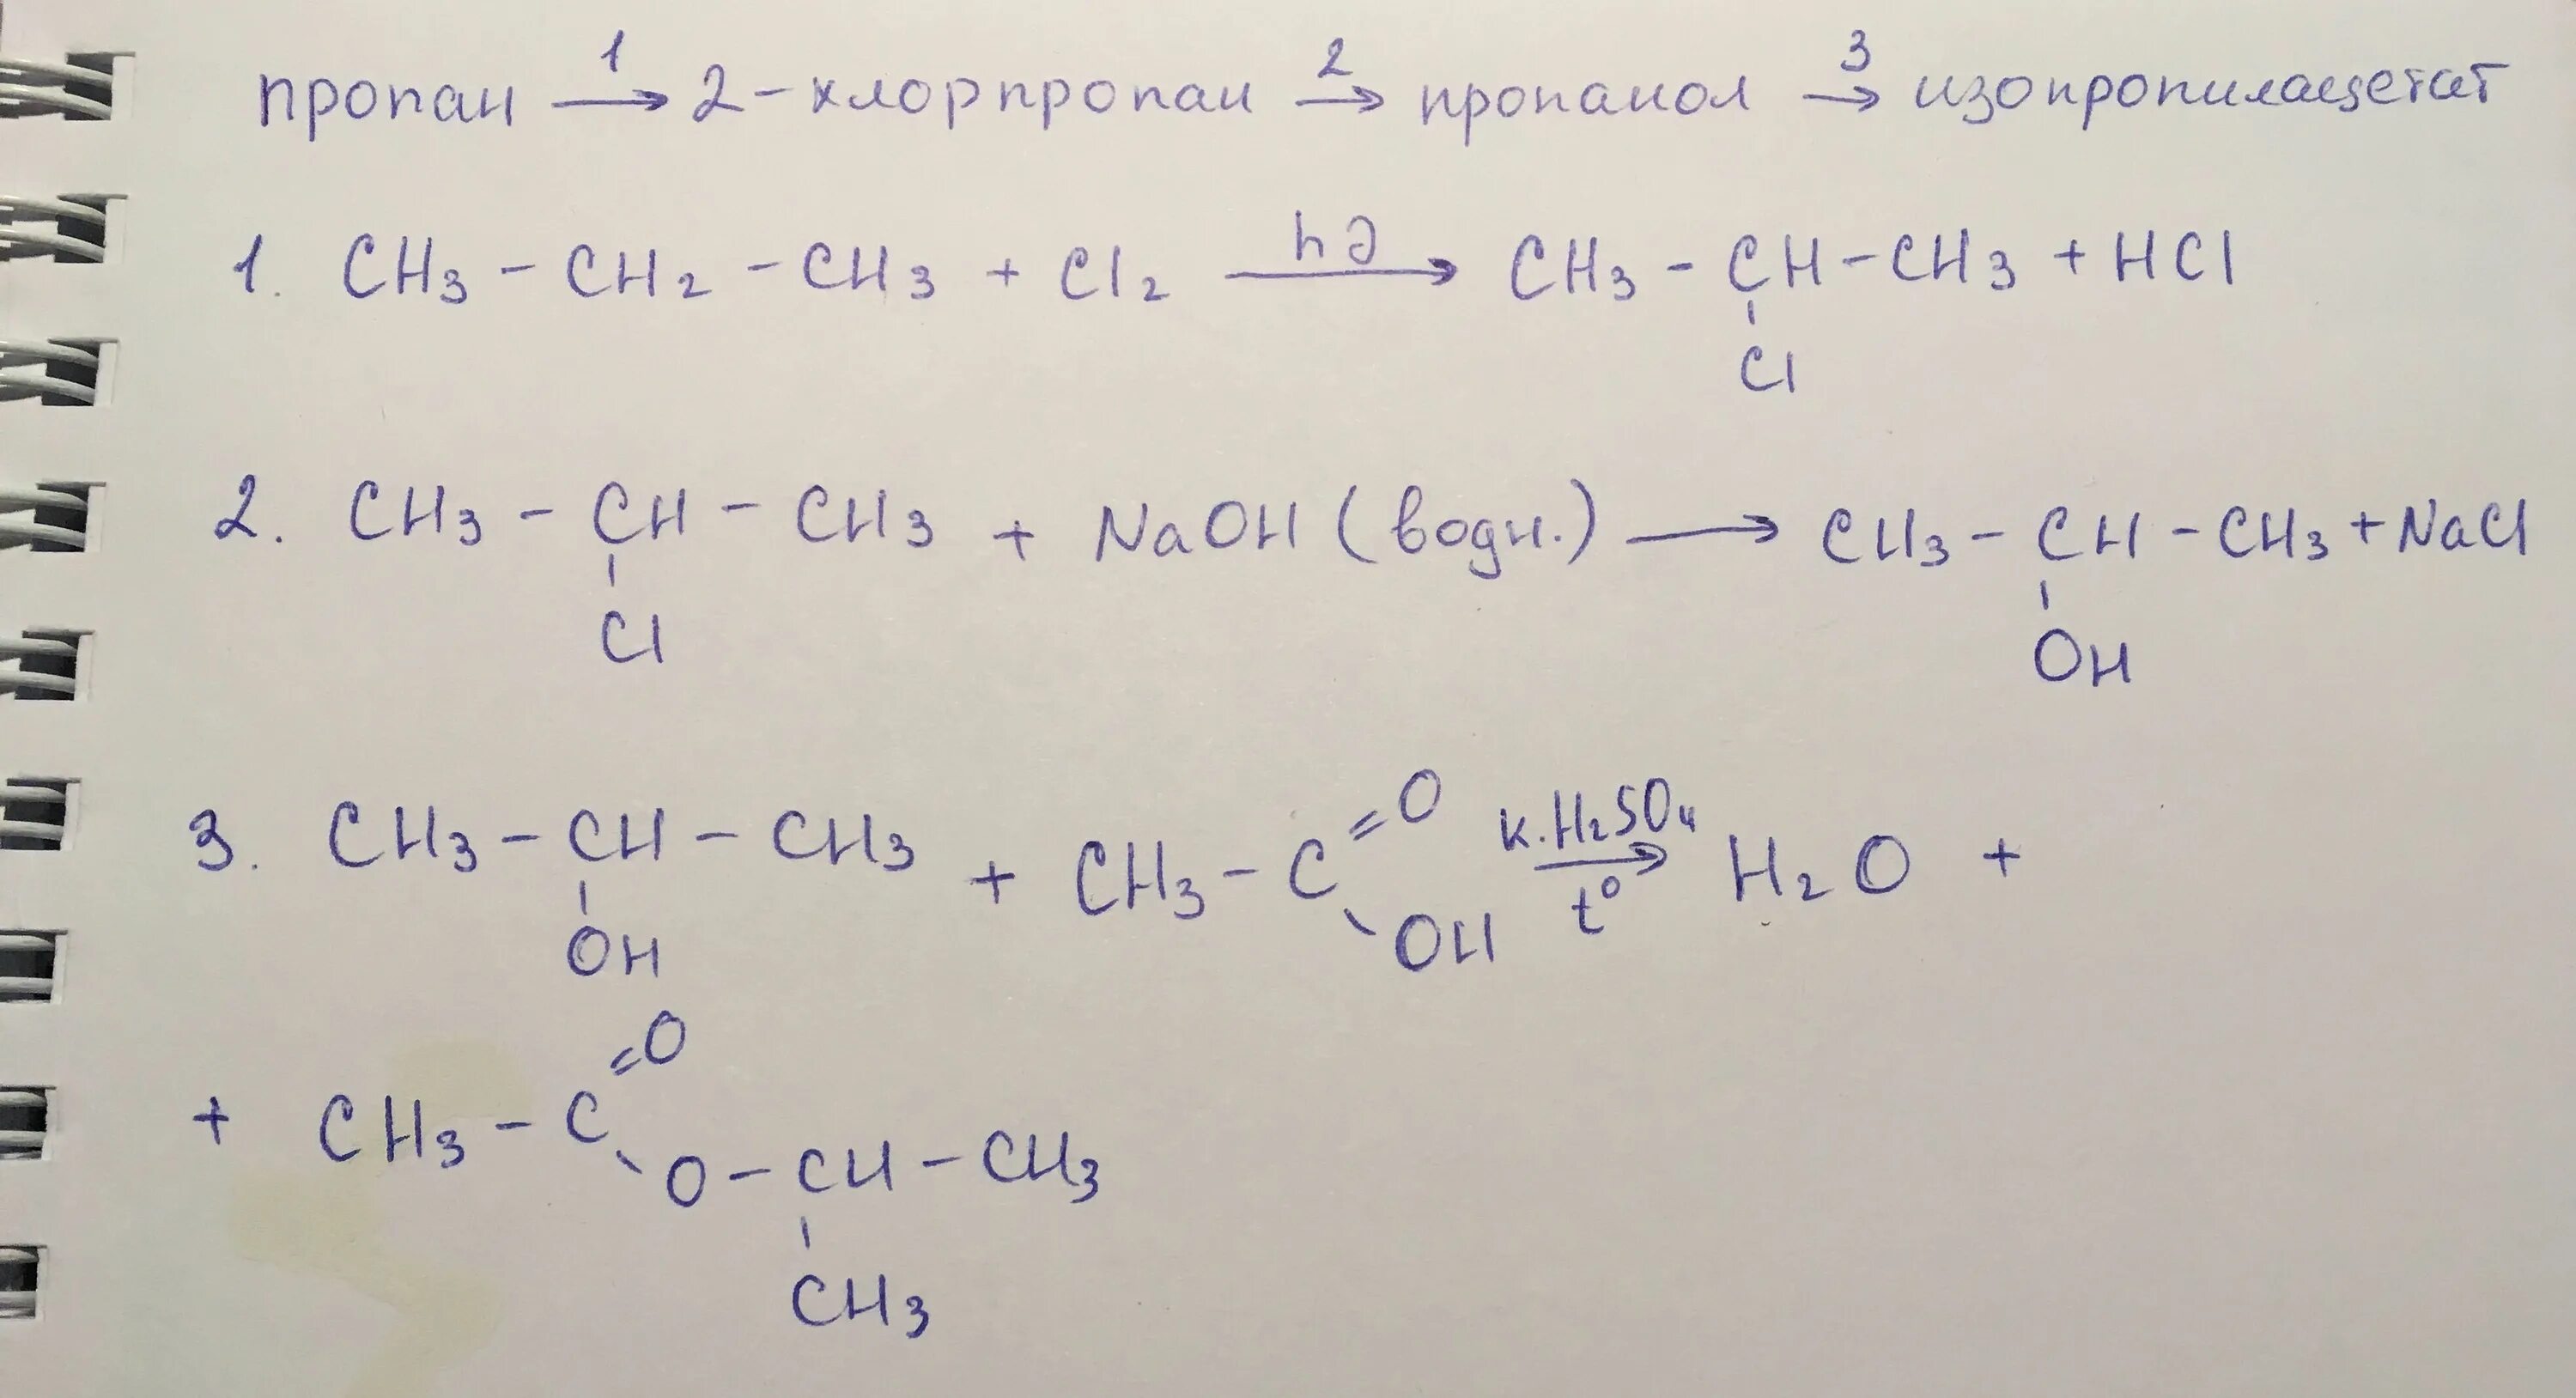 пропан 1→ 2-хлорпропан 2→ пропанол 3→ изопропилацетат
1. CH3 - CH2 - CH3 + Cl2 hν→ CH3 - CH - CH3 + HCl
Cl
2. CH3 - CH - CH3 + NaOH (водн.) → CH3 - CH - CH3 + NaCl
Cl
OH
3. CH3 - CH - CH3 + CH3 - C =O OH к.H2SO4 t° → H2O +
OH
+ CH3 - C =O O - CH - CH3
CH3